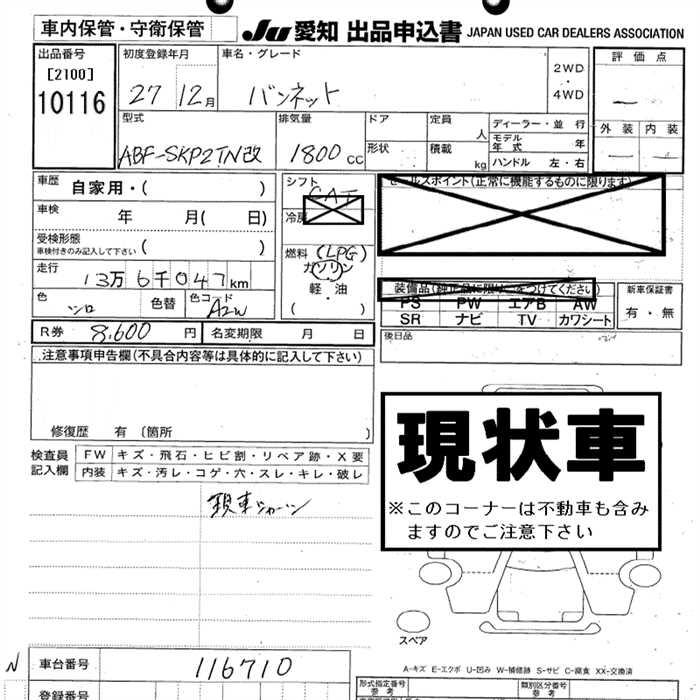 車内保管・守衛保管
JU 愛知 出品申込書 JAPAN USED CAR DEALERS ASSOCIATION
出品番号
[2100]
10116
初度登録年月
27 12月
車名・グレード
バンネット
2WD
・
4WD
評価点
外装 内装
型式
ABF-SKP2TN改
排気量
1800 CC
ドア
形状
定員 人
積載 kg
ディーラー・並行
モデル年式 年
ハンドル 左・右
車歴 自家用・( )
車検 年 月( 日)
受検形態
車検付きのみ記入して下さい ( )
走行
13万6千047km
色 シロ 色替 色コード A2W
シフト
CAT
冷房
燃料 (LPG)
ガソリン
軽・油
( )
セールスポイント(正常に機能するものに限ります)
装備品(純正品に限り○をつけてください)
PS PW エアB AW
SR ナビ TV カワシート
新車保証書
有・無
後日品
R券 8,600円 名変期限 月 日
注意事項申告欄(不具合内容等は具体的に記入して下さい)
修復歴 有 〔箇所 〕
検査員記入欄
FW キズ・飛石・ヒビ割・リペア跡・X要
内装 キズ・汚レ・コゲ・穴・スレ・キレ・破レ
現車
現状車
※このコーナーは不動車も含み
ますのでご注意下さい
スペア
A-キズ E-エクボ U-凹み W-補修跡 S-サビ C-腐食 XX-交換済
N 車台番号 116710
登録番号
型式指定番号
参考
類別区分番号
参考